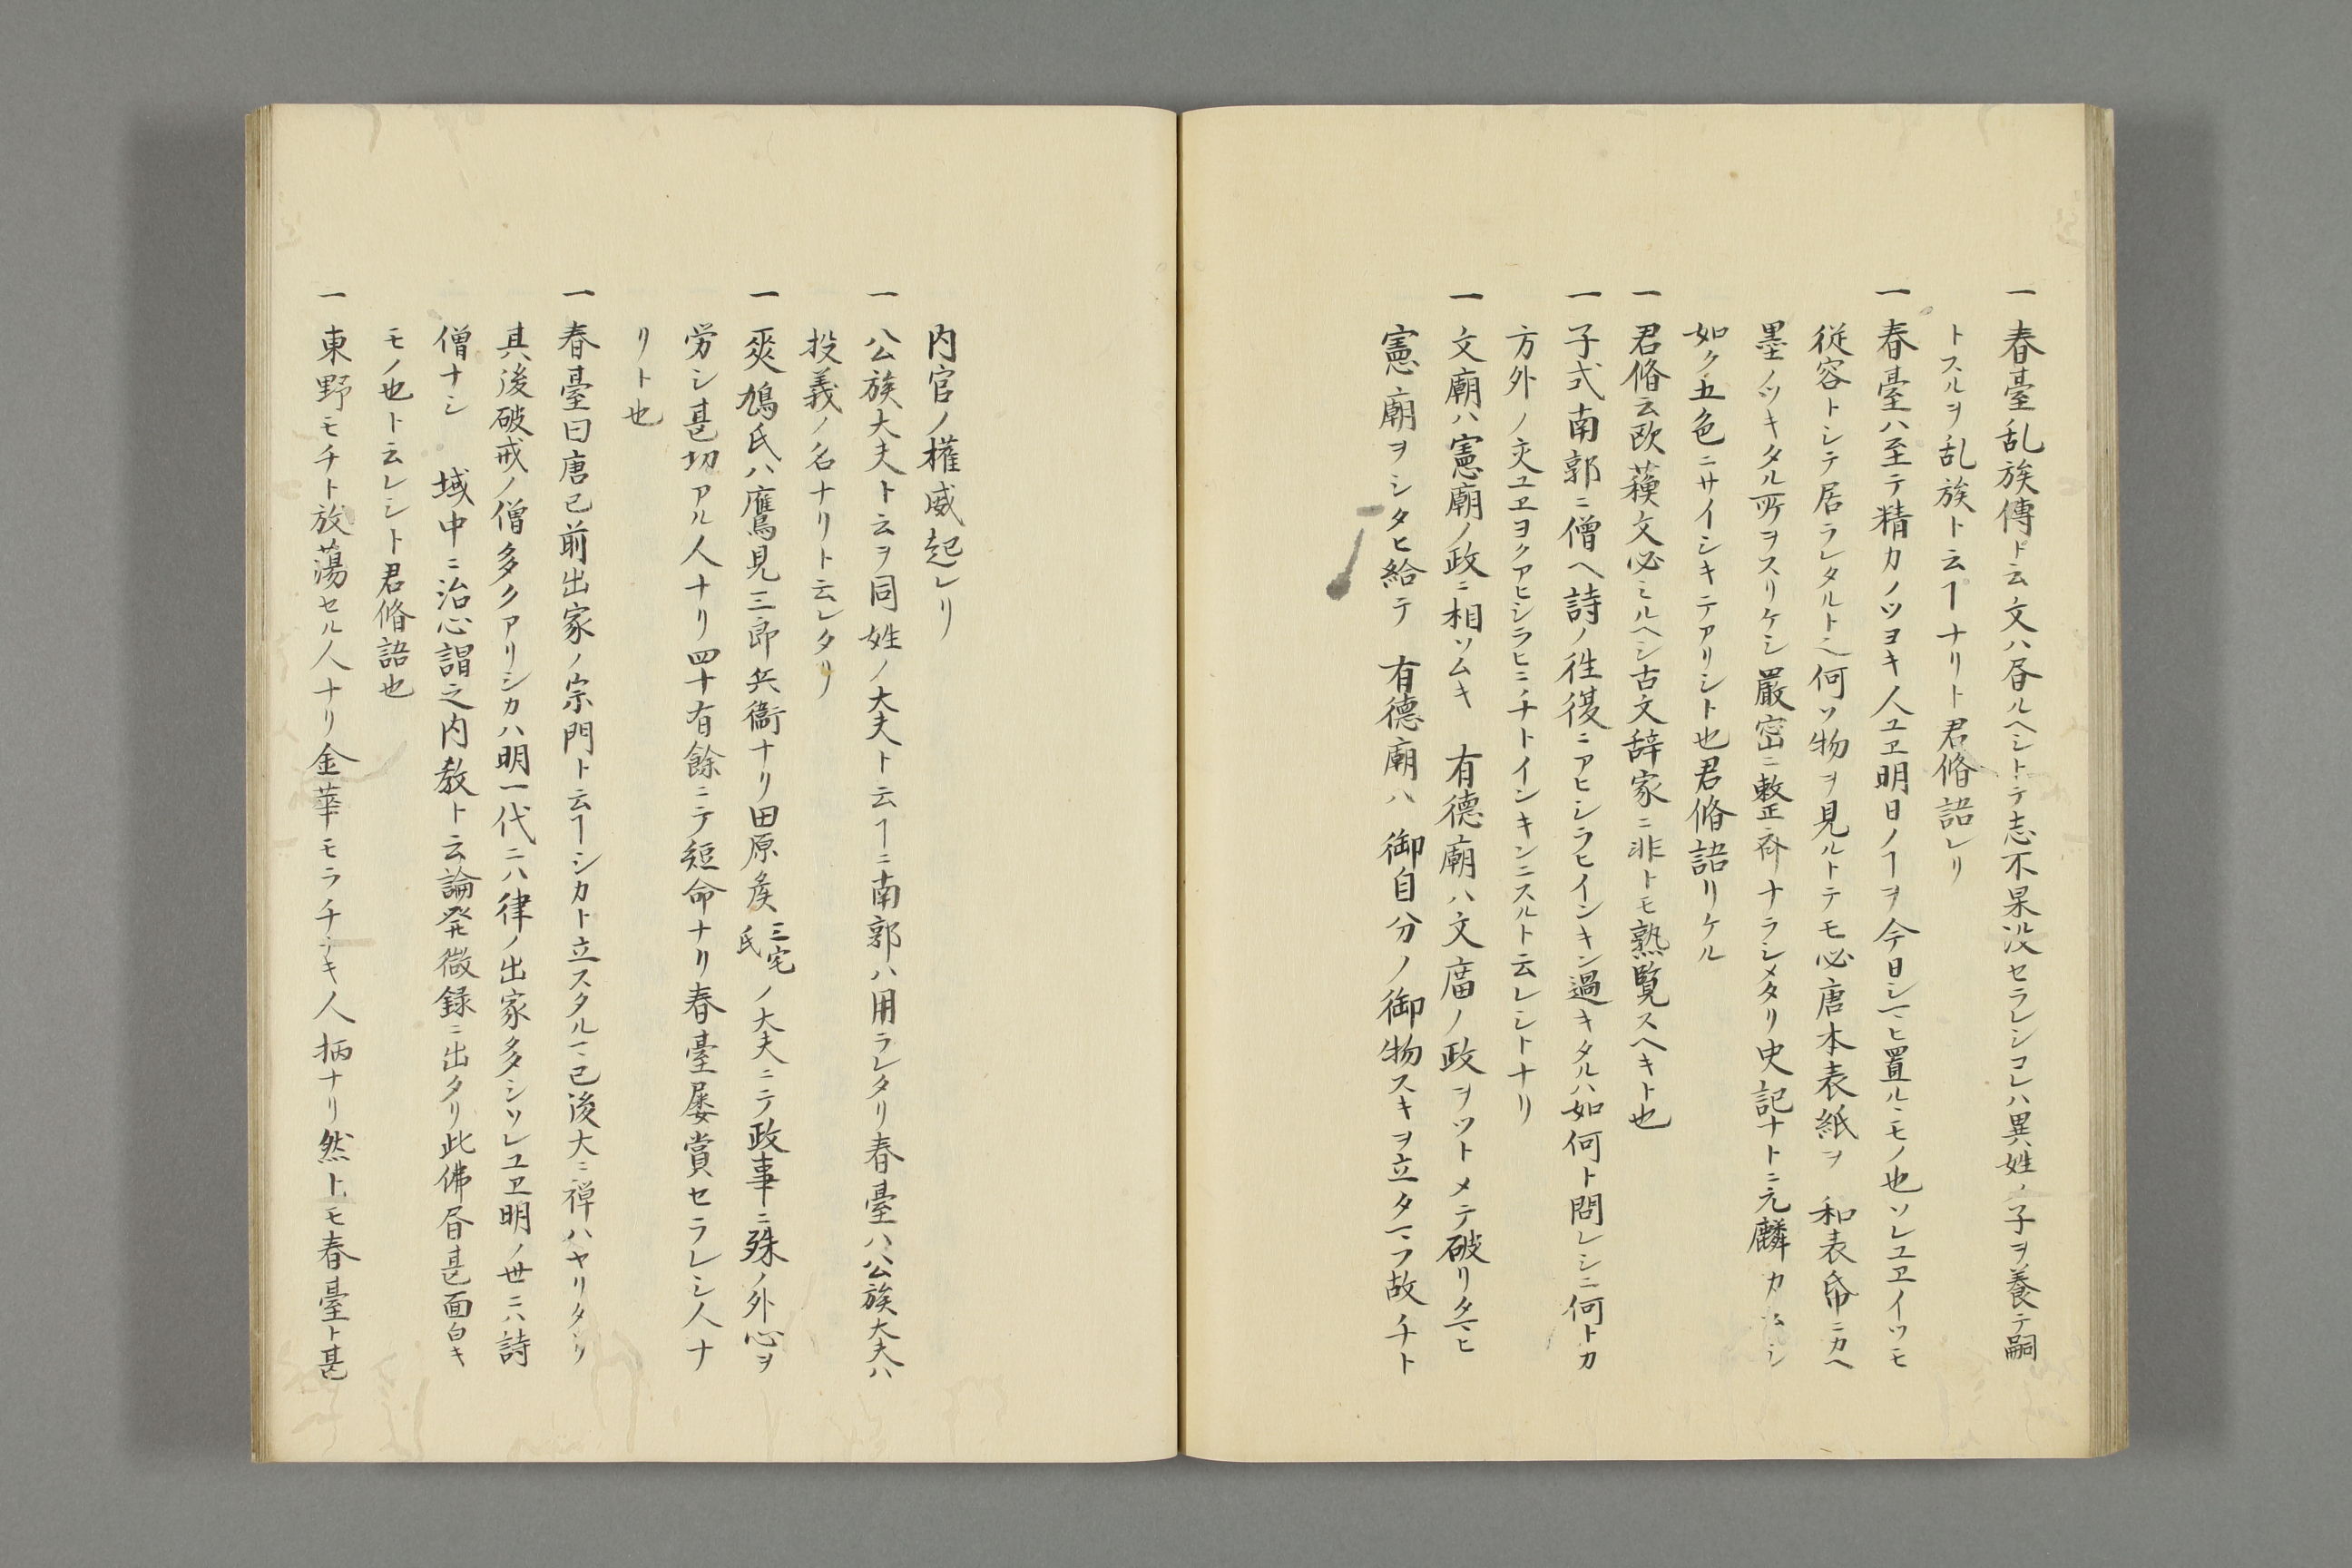 一春臺乱族傳ト云文ハ昏ルヘシトテ志不果没セラレシコレハ異姓ノ子ヲ養テ嗣
トスルヲ乱族ト云ヿナリト君脩語レリ
一春臺ハ至テ精力ノツヨキ人ユヱ明日ノヿヲ今日シマヒ置ルヽモノ也ソレユヱイツモ
従容トシテ居ラレタルト也何ソ物ヲ見ルトテモ必唐本表紙ヲ 和表帋ニカヘ
墨ノツキタル所ヲスリケシ嚴密ニ整斉ナラシメタリ史記ナトニ元麟カ シ
如ク五色ニサイシキテアリシト也君脩語リケル
一君脩云欧蘓文必ミルヘシ古文辞家ニ非トモ熟覧スヘキト也
一子式南郭ニ僧ヘ詩ノ徃復ニアヒシラヒインキン過キタルハ如何ト問レシニ何トカ
方外ノ交ユヱヨクアヒシラヒニチトインキンニスルト云レシトナリ
一文廟ハ憲廟ノ政ニ相ソムキ 有德廟ハ文廟ノ政ヲツトメテ破リ玉ヒ
憲廟ヲシタヒ給テ 有德廟ハ 御自分ノ御物スキヲ立タマフ故チト
内官ノ権威起レリ
一公族大夫ト云ヲ同姓ノ大夫ト云ヿニ南郭ハ用ラレタリ春臺ハ公族大夫ハ
投義ノ名ナリト云レタリ
一爽鳩氏ハ鷹見三郎兵衞ナリ田原矦三宅氏ノ大夫ニテ政事ニ殊ノ外心ヲ
労シ甚切アル人ナリ四十有餘ニテ短命ナリ春臺屡賞セラレシ人ナ
リト也
一春臺曰唐已前出家ノ宗門ト云ヿシカト立スタルマ已後大ニ禅ハヤリタリ
其後破戒ノ僧多クアリシカハ明一代ニハ律ノ出家多シソレユヱ明ノ世ニハ詩
僧ナシ 域中ニ治心謂之内教ト云論発微録ニ出タリ此佛昏甚面白キ
モノ也ト云レシト君脩語也
一東野モチト放蕩セル人ナリ金華モラチナキ人柄ナリ然トモ春臺ト甚